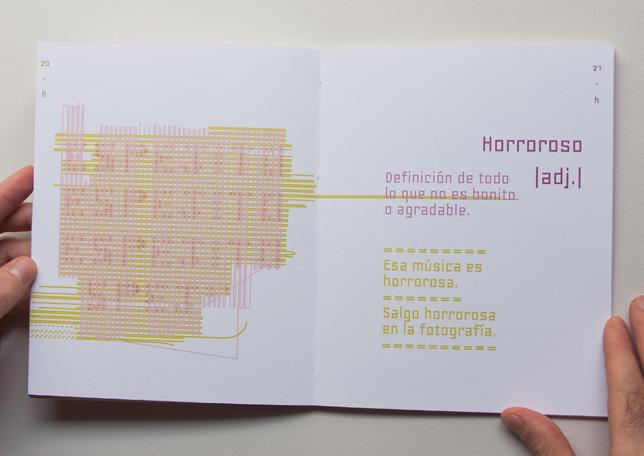 20
-
h
21
-
h
Horroroso
|adj.|
Definición de todo
lo que no es bonito
o agradable.
Esa música es
horrorosa.
Salgo horrorosa
en la fotografía.